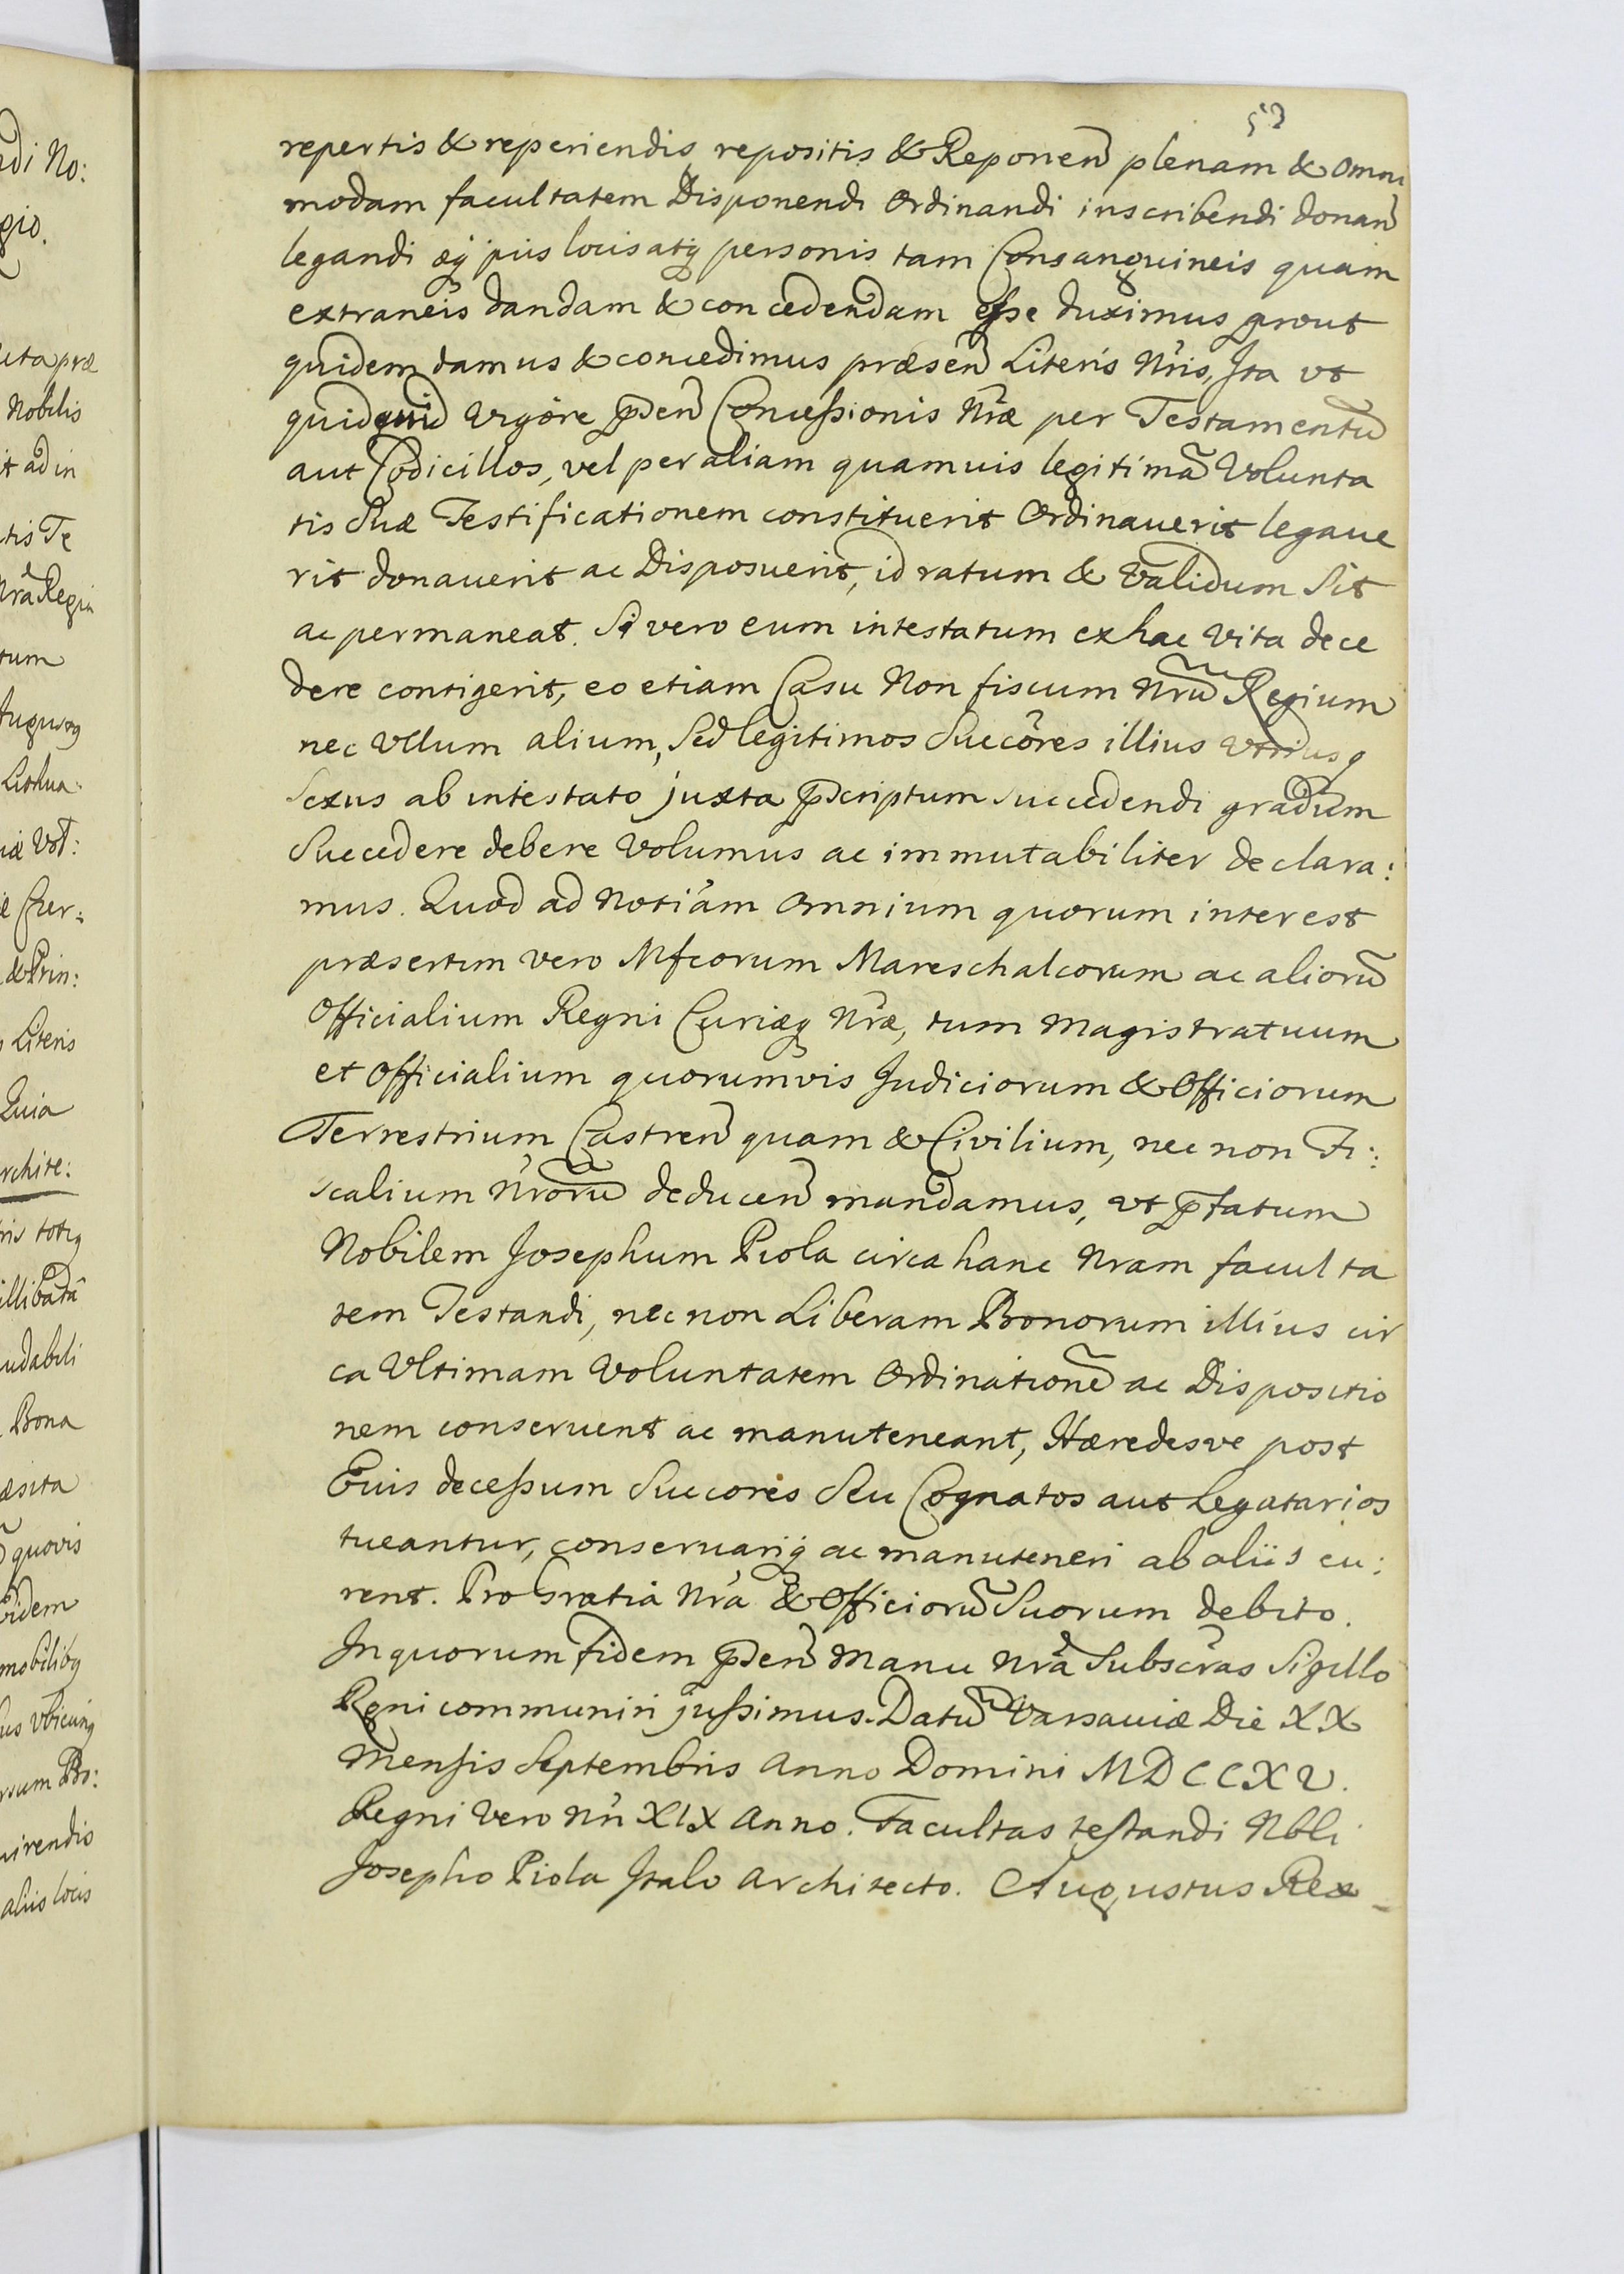 53
repertis & reperiendis, repositis & Reponen plenam & omni
modam facultatem Disponendi Ordinandi inscribendi donan
legandi æq piis locis atq personis tam Consanguineis quam
extraneis dandam & concedendam esse duximus prout
quidem damus & concedimus præsen Literis Nris, Ita vt
quidquid vigore pden Concessionis Nræ per Testamentũ
aut Codicillos, vel per aliam quamuis legitimã Volunta
tis Suæ Testificationem constituerit Ordinauerit legaue
rit donauerit ac Disposuerit, id ratum & Validum Sit
ac permaneat. Si vero eum intestatum ex hac Vita dece
dere contigerit, eo etiam Casu Non fiscum Nrũ Regium
nec Vllum alium, Sed legitimos Succôres illius Vtriusq
Sexus ab intestato juxta pscriptum succedendi gradum
Succedere debere Volumus ac immutabiliter declara:
mus. Quod ad Notiâm Omnium quorum interest
præsertim vero Mfcorum Mareschalcorum ac aliorũ
Officialium Regni Curiæq Nræ, tum Magistratuum
et Officialium quorumvis Judiciorum & Officiorum
Terrestrium Castren quam & Civilium, nec non Fi:
scalium Nrorũ deducen mandamus, vt pfatum
Nobilem Josephum Piola circa hanc Nram faculta
tem Testandi, nec non Liberam Bonorum illius cir
ca Vltimam Voluntatem Ordinationẽ ac Dispositio
nem conseruent ac manuteneant, Hæredesve post
Eius decessum Succores Seu Cognatos aut Legatarios
tueantur, conseruariq ac manuteneri ab aliis cu:
rent. Pro Gratia Nrâ & Officiorũ Suorum debito.
In quorum fidem pden Manu Nrâ Subscrâs Sigillo
Rgni communiri jussimus. Datũ Varsauiæ Die XX
Mensis Septembris Anno Domini MDCCXV.
Regni Vero Nri XIX Anno. Facultas testandi Nbli
Josepho Piola Italo Architecto. Augustus Rex